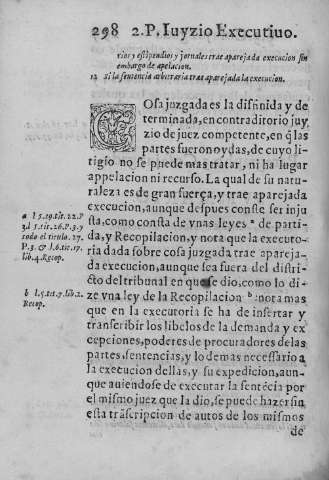 298 2.P. Iuyzio Executiuo.
rios y estipendios y jornales trae aparejada execucion sin
embargo de apelacion.
12 Si la sentencia arbitraria trae aparejada la execucion.
COsa juzgada es la difinida y de
terminada, en contraditorio juy
zio de juez competente, en q̃ las
partes fueron oydas, de cuyo li-
tigio no se puede mas tratar, ni ha lugar
appelacion ni recurso. La qual de su natu-
raleza es de gran fuerça, y trae aparejada
execucion, aunque despues conste ser inju
sta, como consta de vnas leyes a de parti-
da, y Recopilacion, y nota que la executo-
ria dada sobre cosa juzgada trae apareja-
da execucion, aunque sea fuera del distri-
cto del tribunal en que se dio, como lo di-
ze vna ley de la Recopilacion b: nota mas
que en la executoria se ha de insertar y
transcribir los libelos de la demanda y ex
cepciones, poderes de procuradores de las
partes, sentencias, y lo demas necessario a
la execucion dellas, y su expedicion, aun-
que auiendose de executar la sentẽcia por
el mismo juez que la dio, se puede hazer sin
esta trãscripcion de autos de los mismos
de
a l. 5. 19. tit. 22. P.
3. l. 5. tit. 26. P. 3. y
todo el titulo. 27.
P. 3. & l. 6. tit. 17.
lib. 4. Recop.
b l. 5. tit. 7. lib. 2.
Recop.